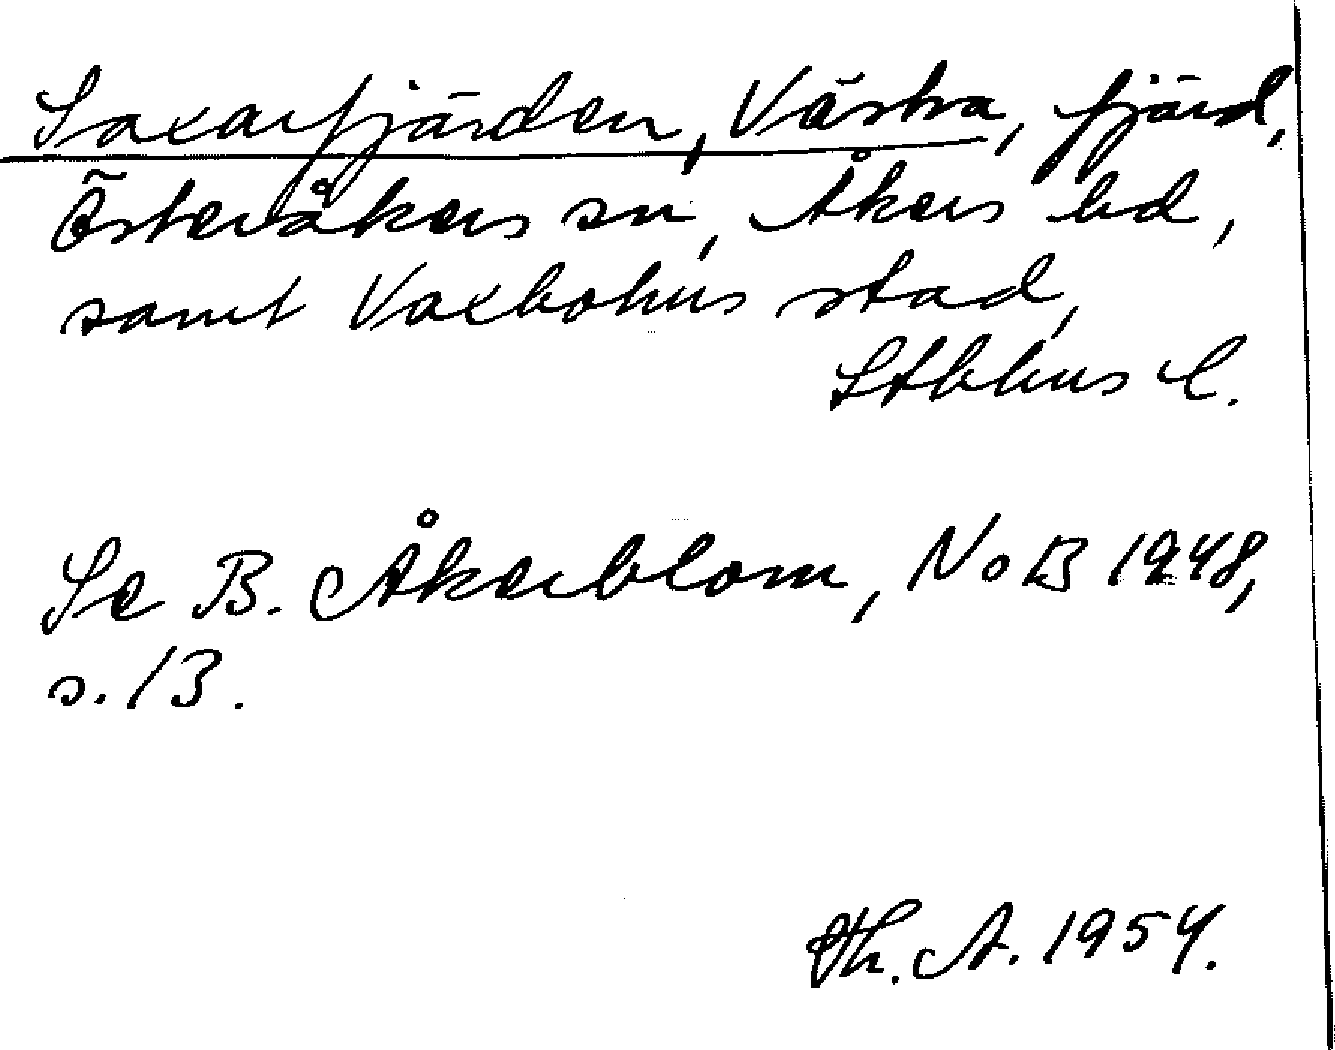 Saxarfjärden, Västra, fjärd,
Österåkers sn, Åkers hd,
samt Vaxholms stad,
Sthlms l.
Se B. Åkerblom, NoB 1948,
s. 13.
Th. A. 1954.